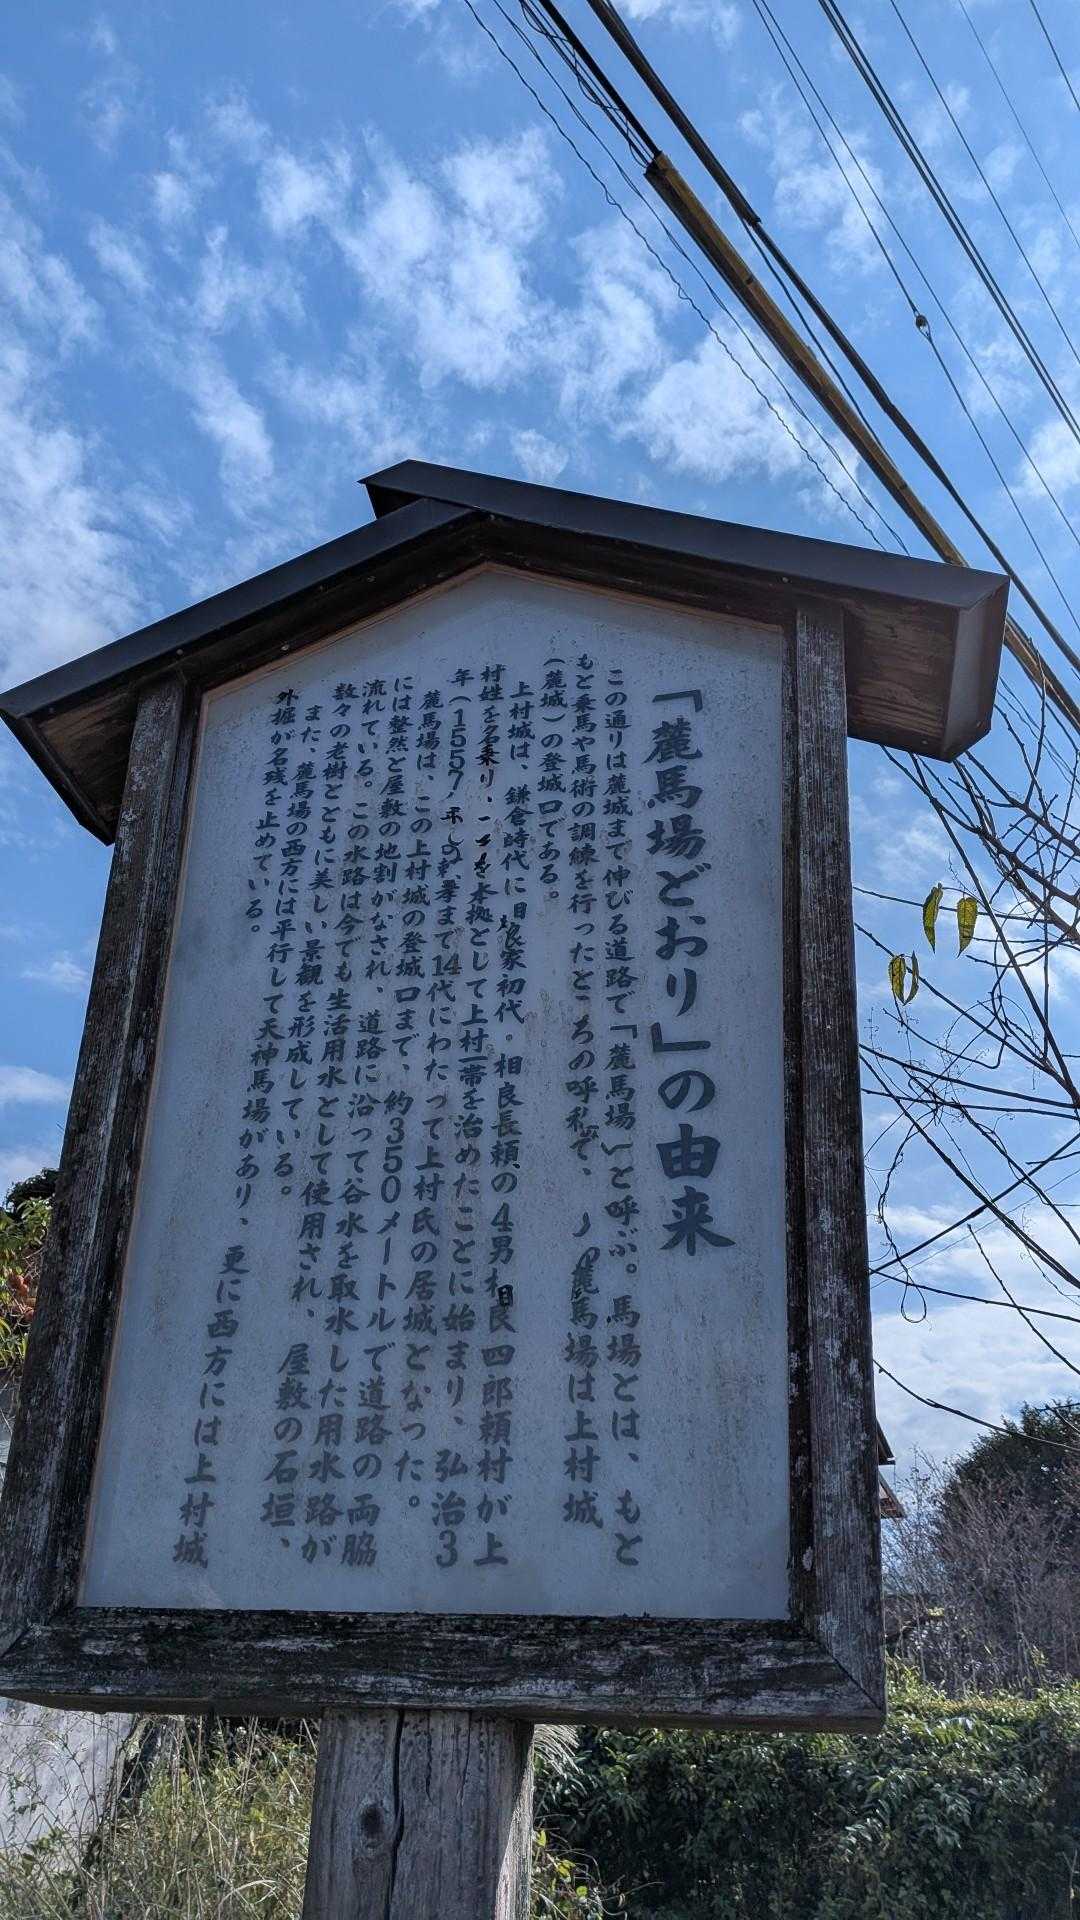 「麓馬場どおり」の由来
この通りは麓城まで伸びる道路で「麓馬場」と呼ぶ。馬場とは、もと
もと乗馬や馬術の調練を行ったところの呼称で、 麓馬場は上村城
(麓城)の登城口である。
上村城は、鎌倉時代に 良家初代・相良長頼の4男相良四郎頼村が上
村姓を名乗り、 を本拠として上村一帯を治めたことに始まり、弘治3
年(1557 まで14代にわたって上村氏の居城となった。
麓馬場は、この上村城の登城口まで、約350メートルで道路の両脇
には整然と屋敷の地割がなされ、道路に沿って谷水を取水した用水路が
流れている。この水路は今でも生活用水として使用され、屋敷の石垣、
数々の老樹とともに美しい景観を形成している。
また、麓馬場の西方には平行して天神馬場があり、更に西方には上村城
外堀が名残を止めている。